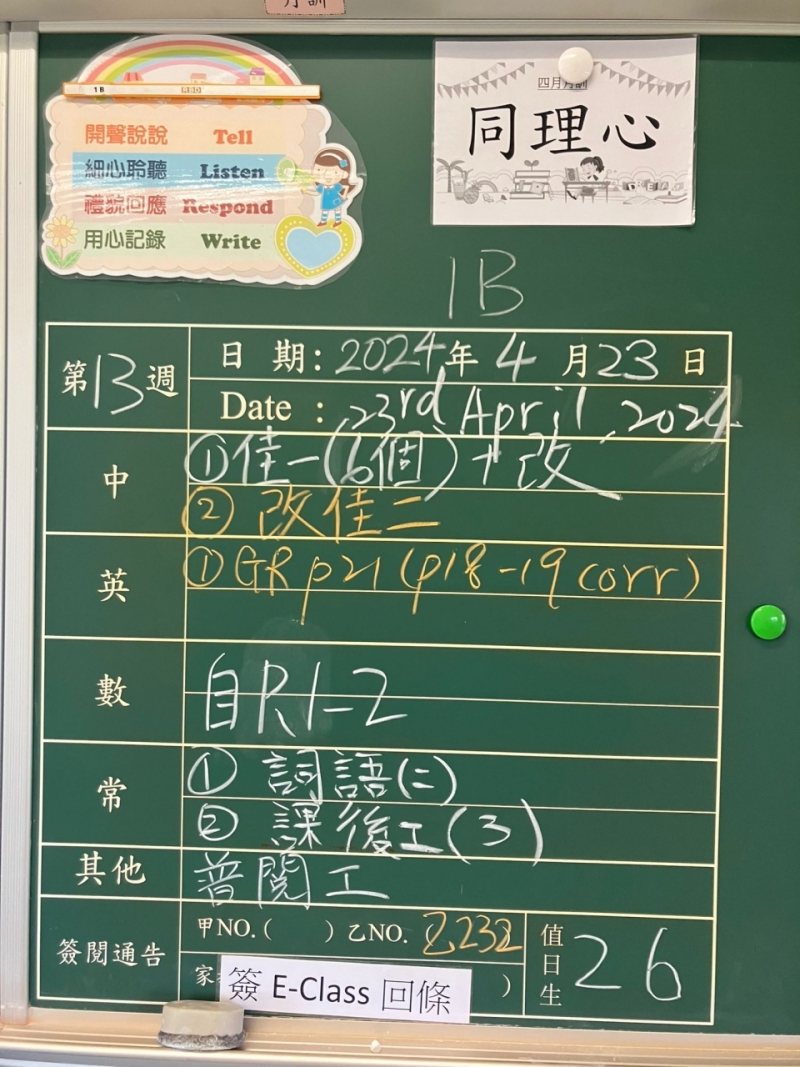 月訓
1B
RBD
開聲說說 Tell
細心聆聽 Listen
禮貌回應 Respond
用心記錄 Write
四月月訓
同理心
1B
第13週
日期：2024年4月23日
Date : 23rd April, 2024
中
①佳一(6個)+改
②改佳二
英
①GR p21 (p18-19 corr)
數
自R1-2
常
①詞語(二)
②課後工(3)
其他
普閱工
簽閱通告
甲NO.( ) 乙NO. Z232
家
)
簽 E-Class 回條
值日生
26